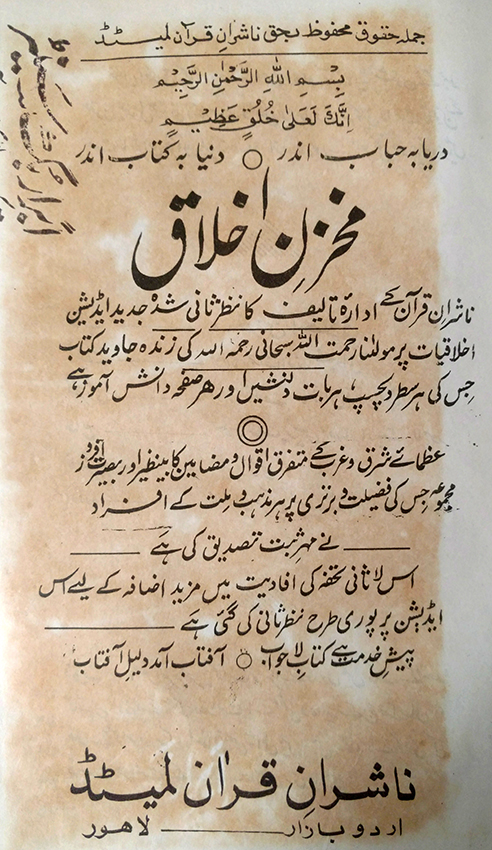 جملہ حقوق محفوظ بحق ناشرانِ قرآن لمیٹڈ
بِسْمِ اللهِ الرَّحْمٰنِ الرَّحِيْمِ
اِنَّكَ لَعَلٰى خُلُقٍ عَظِيْمٍ
دریا بہ حباب اندر ○ دنیا بہ کتاب اندر
مخزنِ اخلاق
ناشرانِ قرآن کے ادارۂ تالیف کا نظرثانی شدہ جدید ایڈیشن
اخلاقیات پر مولٰنا رحمت اللہ سبحانی رحمہ اللہ کی زندہ جاوید کتاب
جس کی ہر سطر دلچسپ، ہر بات دلنشیں اور ہر صفحہ دانش آموز ہے
عظمائے شرق و غرب کے متفرق اقوال و مضامین کا بینظیر اور بصیرت افروز
مجموعہ جس کی فضیلت و برتری پر ہر مذہب و ملت کے افراد
نے مہر ثبت تصدیق کی ہے
اس لاثانی تحفہ کی افادیت میں مزید اضافہ کے لیے اس
ایڈیشن پر پوری طرح نظرثانی کی گئی ہے
پیشِ خدمت ہے کتابِ لاجواب ○ آفتاب آمد دلیلِ آفتاب
ناشرانِ قرآن لمیٹڈ
اردو بازار ——— لاہور